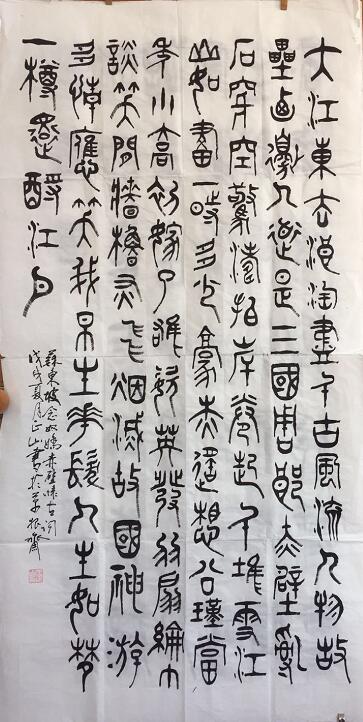 大江東去浪淘盡千古風流人物故
壘西邊人道是三國周郎赤壁亂
石穿空驚濤拍岸卷起千堆雪江
山如畫一時多少豪杰遥想公瑾當
年小喬初嫁了雄姿英發羽扇綸巾
談笑間檣櫓灰飛烟滅故國神游
多情應笑我早生華髮人生如夢
一樽還酹江月
蘇東坡念奴嬌赤壁懷古詞
戊戌夏月正山書於草根齋